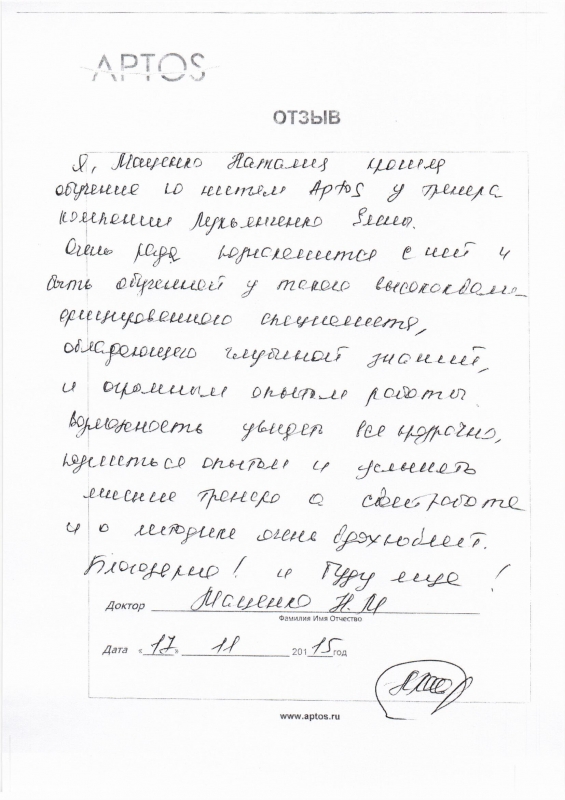 APTOS
ОТЗЫВ
Я, Маценко Наталия прошла
обучение по нитям Aptos у тренера
компании Лукьянченко Елены.
Очень рада познакомится с ней и
быть обученной у такого высококвали-
фицированного специалиста,
обладающего глубиной знаний,
и огромным опытом работы.
Возможность увидеть все прозрачно,
поделиться опытом и услышать
мнение тренера о своей работе
и о методике очень вдохновляет.
Благодарна! и буду еще!
Доктор Маценко Н.М
Фамилия Имя Отчество
Дата «17» 11 2015 год
www.aptos.ru